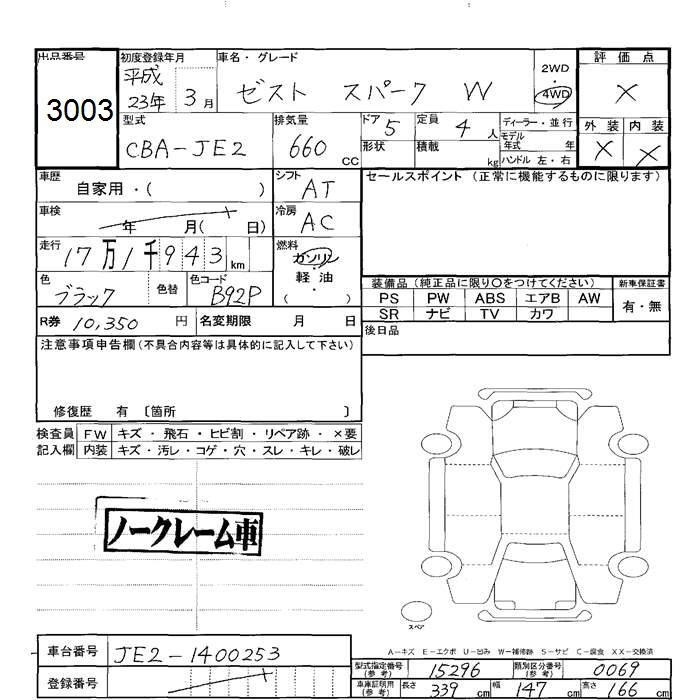 出品番号 初度登録年月 車名・グレード 2WD 評価点
3003 平成23年 3月 ゼスト スパーク W 4WD ×
型式 排気量 ドア 定員 ディーラー・並行 外装 内装
CBA-JE2 660 CC 5 4人 モデル年式 年 × ×
形状 積載 kg ハンドル 左・右
車歴 シフト セールスポイント (正常に機能するものに限ります)
自家用・( ) AT
車検 年 月( 日) 冷房 AC
走行 17万1千943 km 燃料 ガソリン・軽油・( )
色 色替 色コード 装備品 (純正品に限り○をつけてください) 新車保証書
ブラック B92P PS PW ABS エアB AW 有・無
SR ナビ TV カワ
R券 10,350 円 名変期限 月 日 後日品
注意事項申告欄(不具合内容等は具体的に記入して下さい)
修復歴 有 〔箇所 〕
検査員 FW キズ・飛石・ヒビ割・リペア跡・×要
記入欄 内装 キズ・汚レ・コゲ・穴・スレ・キレ・破レ
ノークレーム車
スペア
A-キズ E-エクボ U-凹み W-補修跡 S-サビ C-腐食 XX-交換済
車台番号 JE2-1400253 型式指定番号(参考) 15296 類別区分番号(参考) 0069
登録番号 車庫証明用(参考) 長さ 339 cm 幅 147 cm 高さ 166 cm